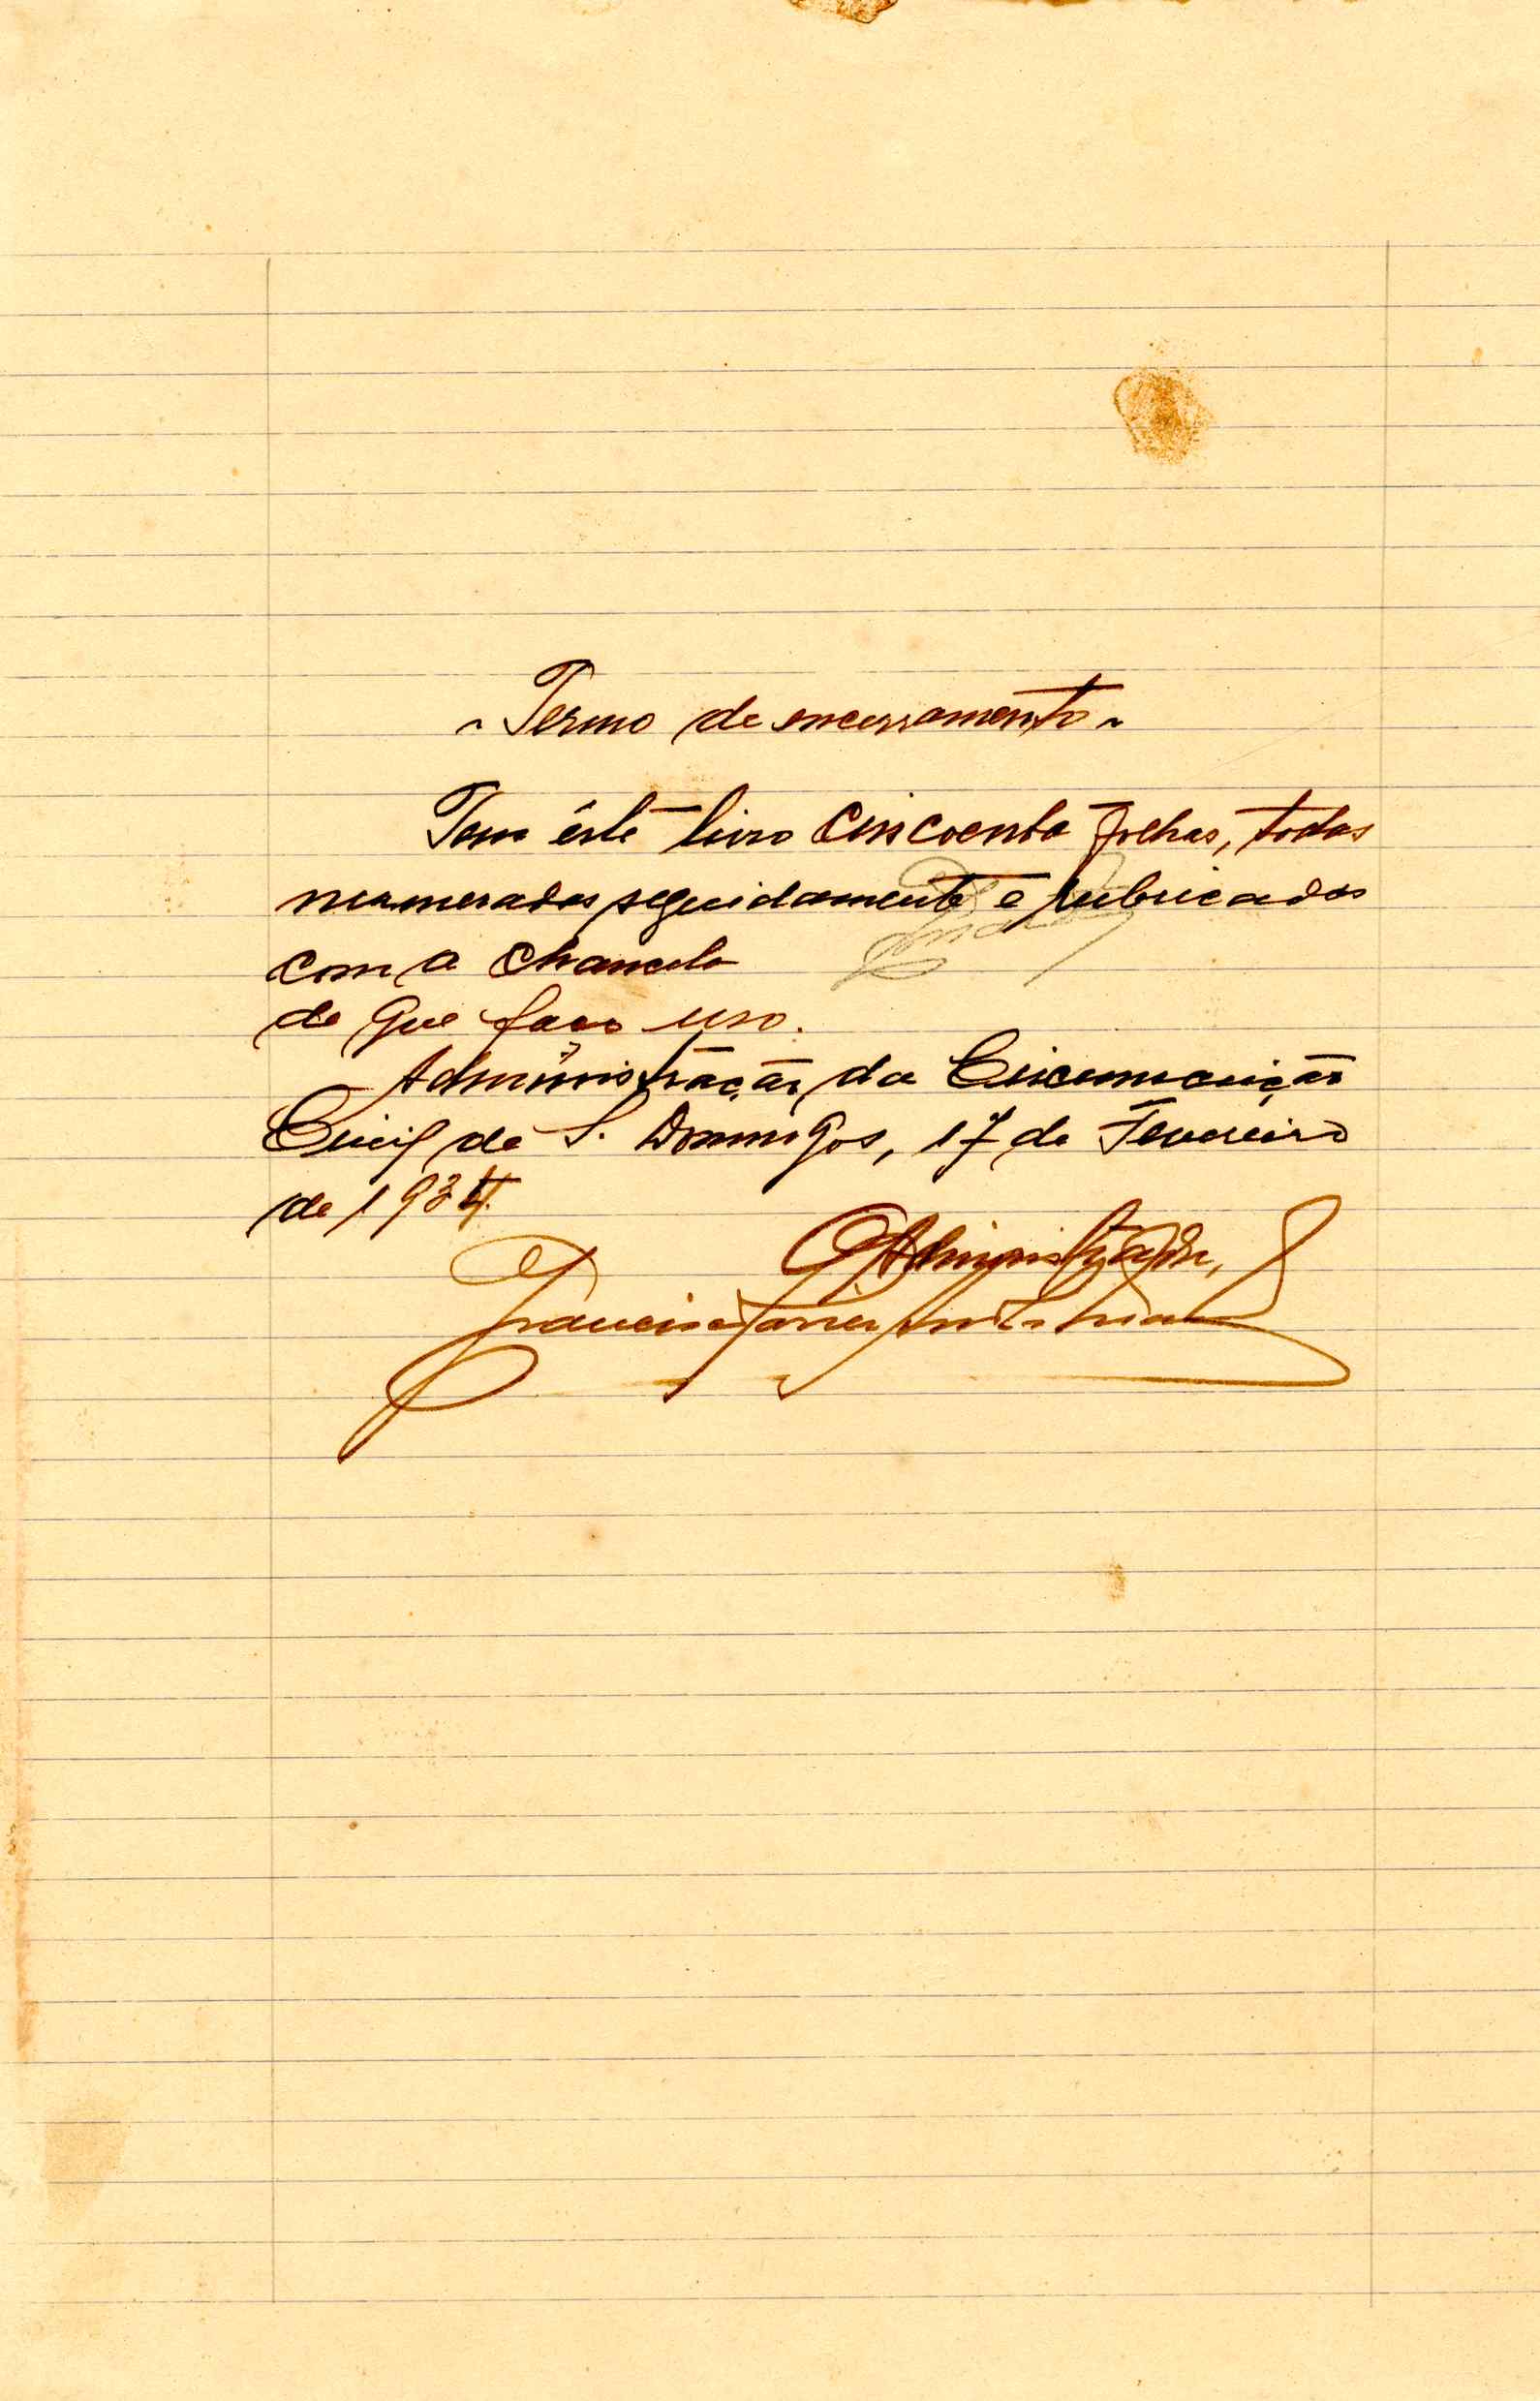 - Termo de encerramento -
Tem êste livro cincoenta folhas, todas
numeradas seguidamente e rubricadas
com a chancela
de que faço uso.
Administração da Circunscrição
Civil de S. Domingos, 17 de Fevereiro
de 1934.
O Administrador,
Francisco